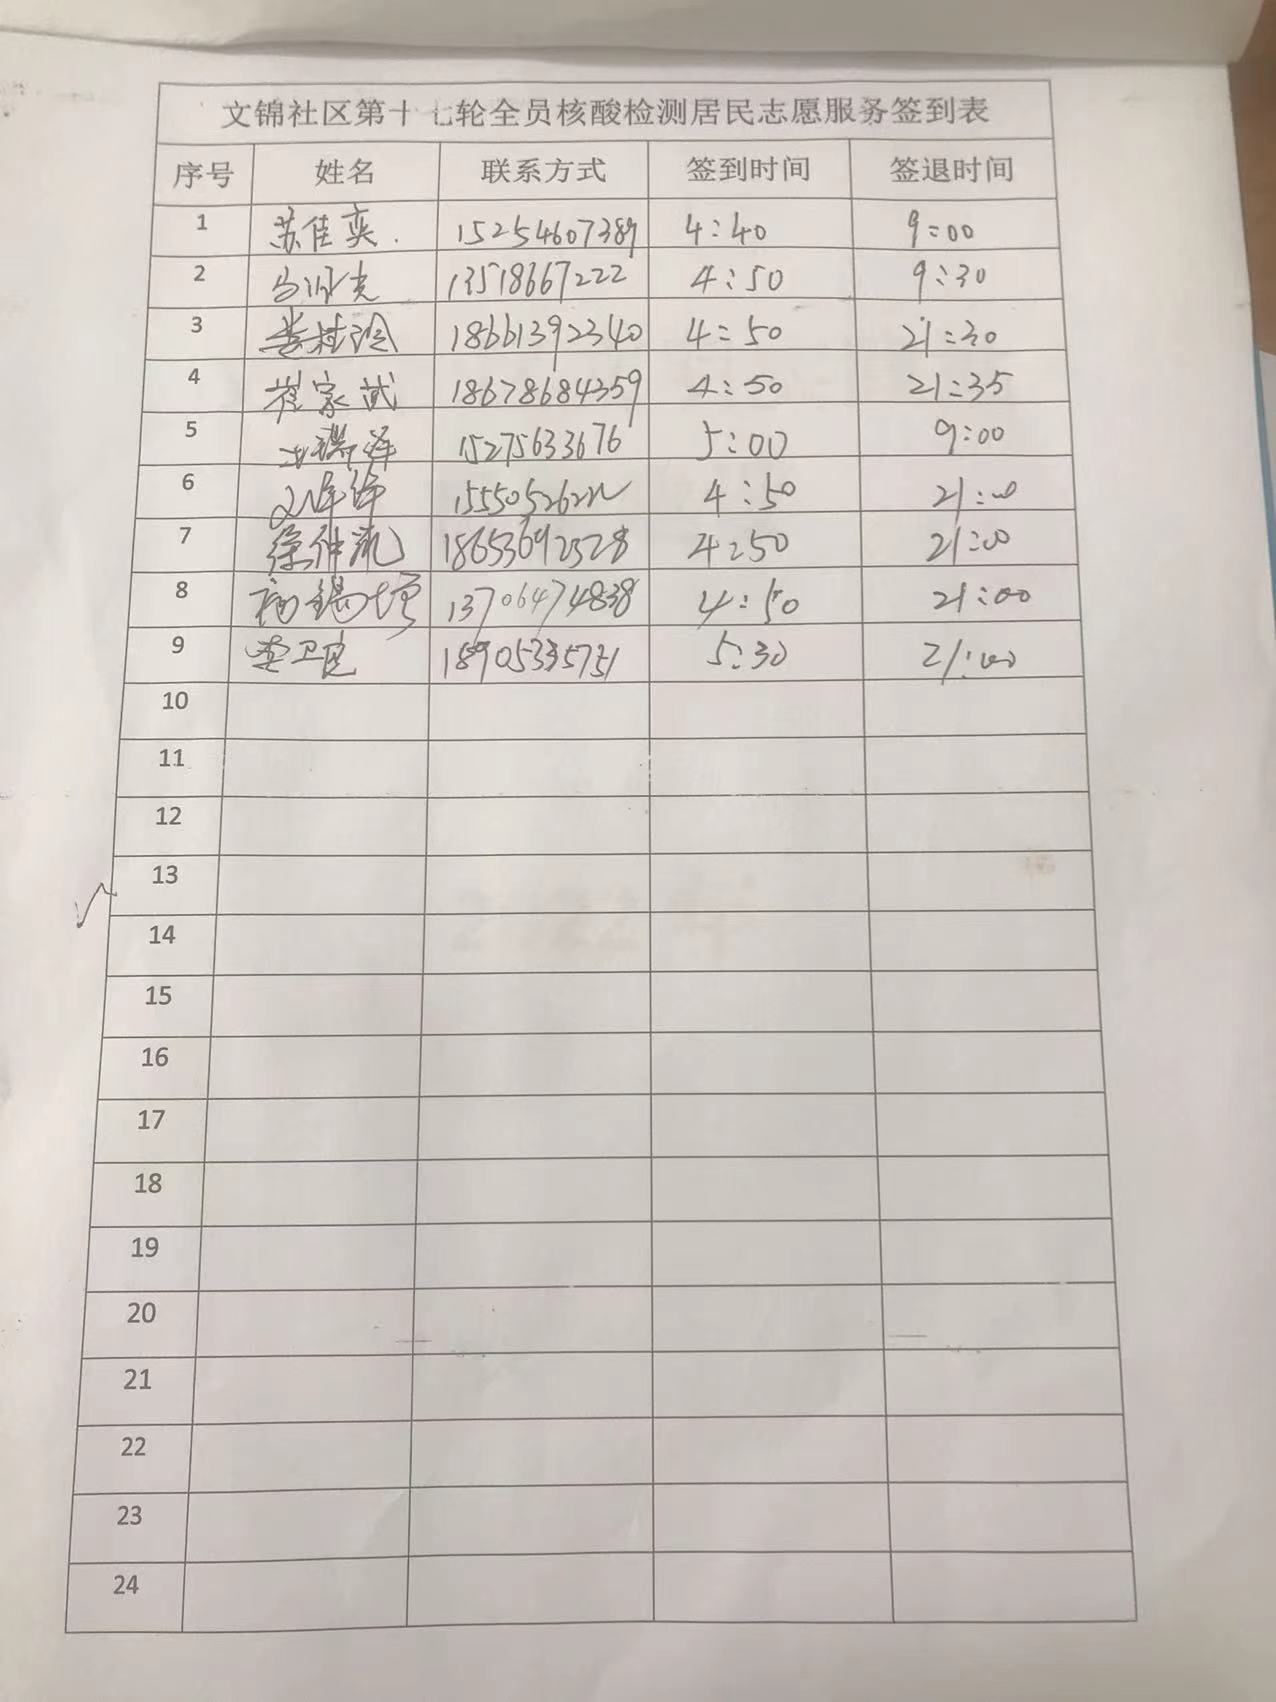 文锦社区第十七轮全员核酸检测居民志愿服务签到表
序号 姓名 联系方式 签到时间 签退时间
1 苏佳奕. 15254607389 4:40 9:00
2 13518667222 4:50 9:30
3 18661392340 4:50 21:30
4 崔家斌 18678684359 4:50 21:35
5 15275633676 5:00 9:00
6 4:50 21:00
7 徐仲流 18653692528 4:50 21:00
8 13706474838 4:50 21:00
9 李卫良 18905335751 5:30 21:00
10
11
12
13
14
15
16
17
18
19
20
21
22
23
24